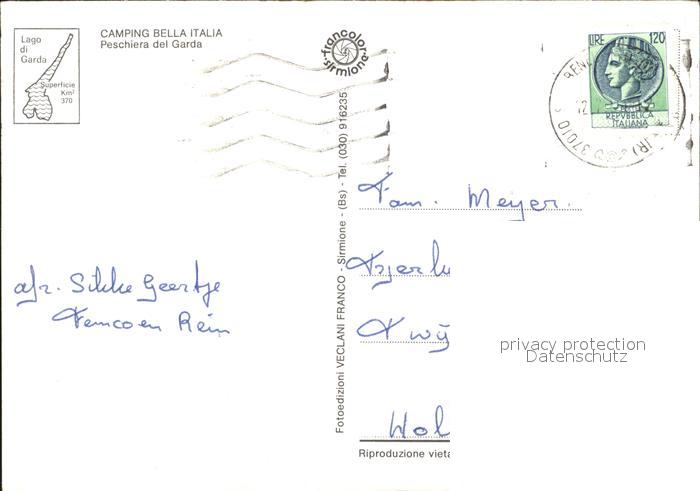 Lago
di
Garda
Superficie
Km²
370
CAMPING BELLA ITALIA
Peschiera del Garda
francolor
sirmione
LIRE 120
REPVBBLICA
ITALIANA
37010
Fotoedizioni VECLANI FRANCO - Sirmione - (Bs) - Tel. (030) 916235
Fam. Meyer.
afz. Sikke Geertje
Femco en Rein
Hol
privacy protection
Datenschutz
Riproduzione vieta